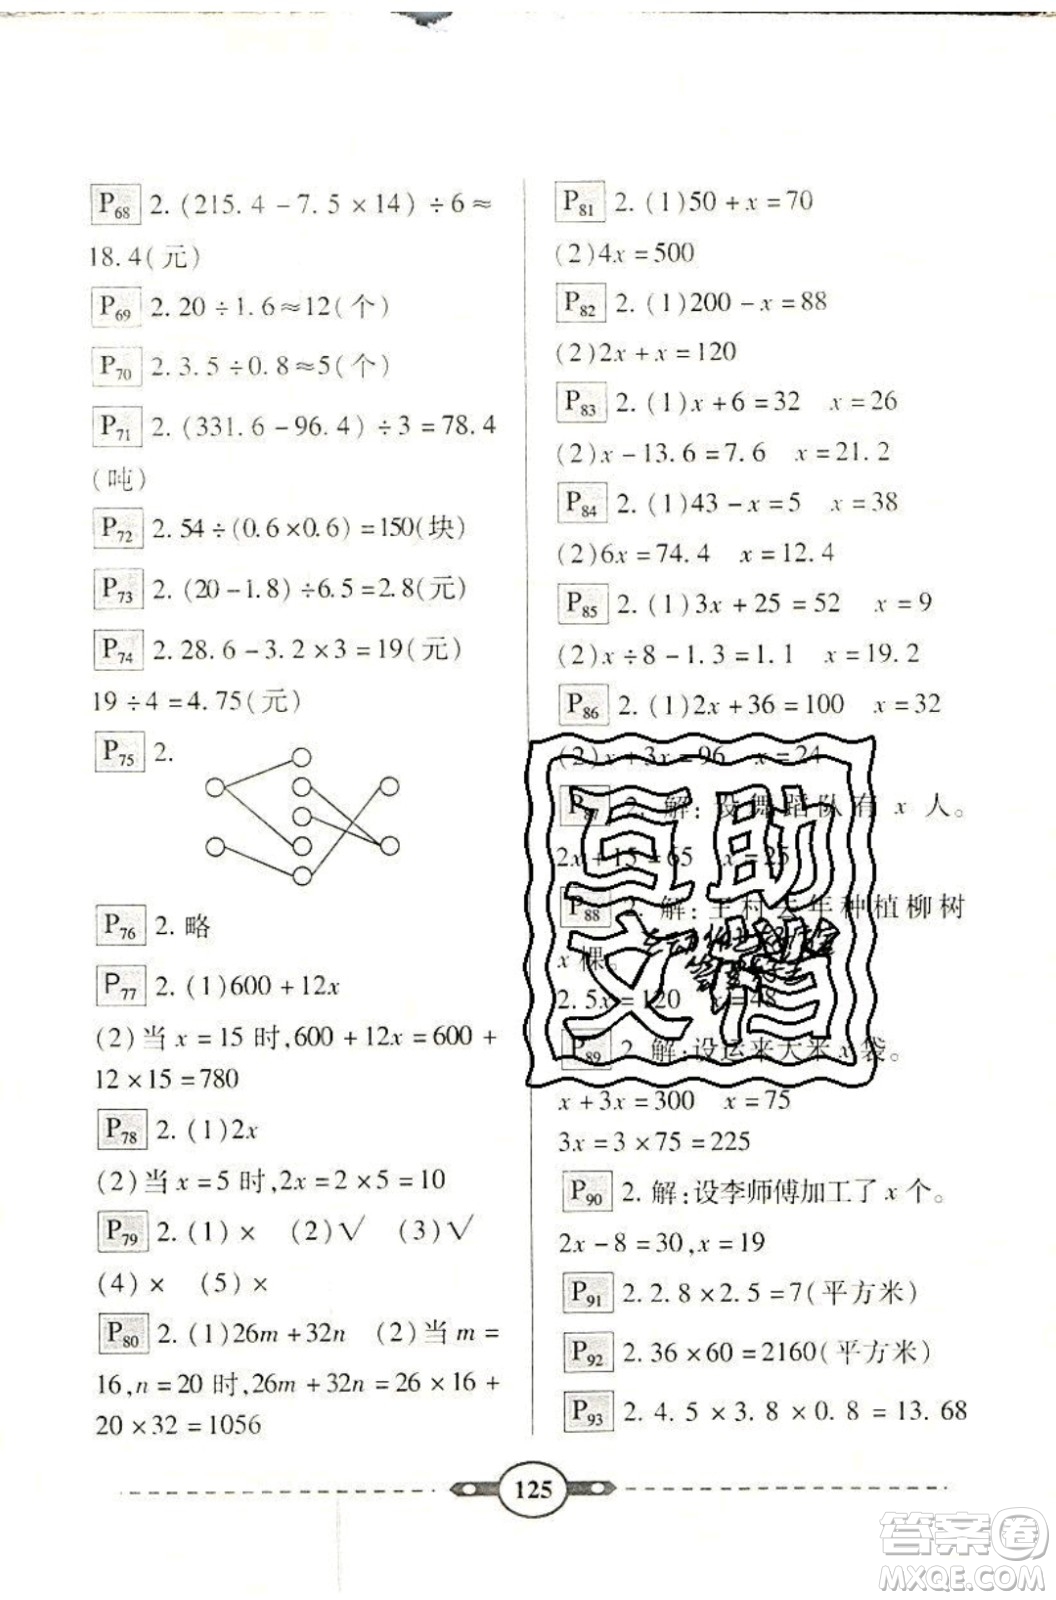 P68 2. (215.4-7.5×14)÷6≈
18.4(元)
P69 2. 20÷1.6≈12(个)
P70 2. 3.5÷0.8≈5(个)
P71 2. (331.6-96.4)÷3=78.4
(吨)
P72 2. 54÷(0.6×0.6)=150(块)
P73 2. (20-1.8)÷6.5=2.8(元)
P74 2. 28.6-3.2×3=19(元)
19÷4=4.75(元)
P75 2.
P76 2. 略
P77 2. (1)600+12x
(2)当x=15时,600+12x=600+
12×15=780
P78 2. (1)2x
(2)当x=5时,2x=2×5=10
P79 2. (1)× (2)√ (3)√
(4)× (5)×
P80 2. (1)26m+32n (2)当m=
16,n=20时,26m+32n=26×16+
20×32=1056
P81 2. (1)50+x=70
(2)4x=500
P82 2. (1)200-x=88
(2)2x+x=120
P83 2. (1)x+6=32 x=26
(2)x-13.6=7.6 x=21.2
P84 2. (1)43-x=5 x=38
(2)6x=74.4 x=12.4
P85 2. (1)3x+25=52 x=9
(2)x÷8-1.3=1.1 x=19.2
P86 2. (1)2x+36=100 x=32
(2)x+3x=96 x=24
P87 2. 解:设舞蹈队有x人。
2x+15=65 x=25
P88 2. 解:王村去年种植柳树
x棵
2.5x=120 x=48
P89 2. 解:设运来大米x袋。
x+3x=300 x=75
3x=3×75=225
P90 2. 解:设李师傅加工了x个。
2x-8=30,x=19
P91 2. 2.8×2.5=7(平方米)
P92 2. 36×60=2160(平方米)
P93 2. 4.5×3.8×0.8=13.68
125
互助
文档
答案圈
MXQE.COM